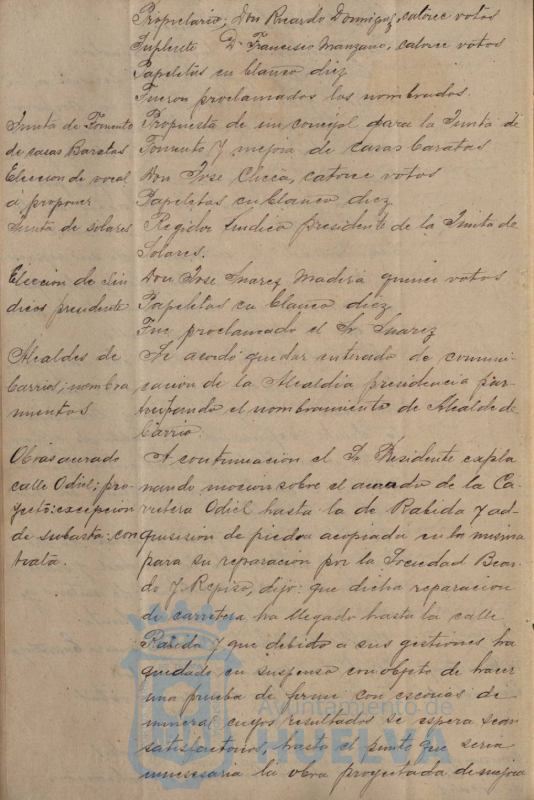 Propietario, Don Ricardo Dominguez, catorce votos
Suplente D. Francisco Manzano, catorce votos
Papeletas en blanco diez
Fueron proclamados los nombrados.
Junta de Fomento
de casas Baratas
Eleccion de vocal
á proponer
Propuesta de un concejal para la Junta de
Fomento y mejora de casas baratas
Don Jose Checa, catorce votos
Papeletas en blanco diez
Junta de solares
Regidor Sindico presidente de la Junta de
Solares.
Eleccion de Sin
dicos presidente
Don Jose Suarez Madera quince votos
Papeletas en blanco diez
Fue proclamado el Sr Suarez
Alcaldes de
barrio; nombra
mientos
Se acordó quedar enterado de comuni-
cación de la Alcaldia presidencia par-
ticipando el nombramiento de Alcalde de
barrio.
Obras acerado
calle Odiel; pro-
yecto: excepcion
de subasta: con
trata.
A continuación el Sr Presidente expla
nando mocion sobre el acerado de la Ca-
rretera Odiel hasta la de Rabida y ad-
quisision de piedra acopiada en la misma
para su reparación por la Sociedad
y Repiso, dijo: que dicha reparacion
de carretera ha llegado hasta la calle
Rabida y que debido a sus gestiones ha
quedado en suspenso con objeto de hacer
una prueba de firme con escorias de
mineral cuyos resultados se espera sean
satisfactorios, hasta el punto que seria
innecesaria la obra proyectada de mejora
Ayuntamiento de
HUELVA